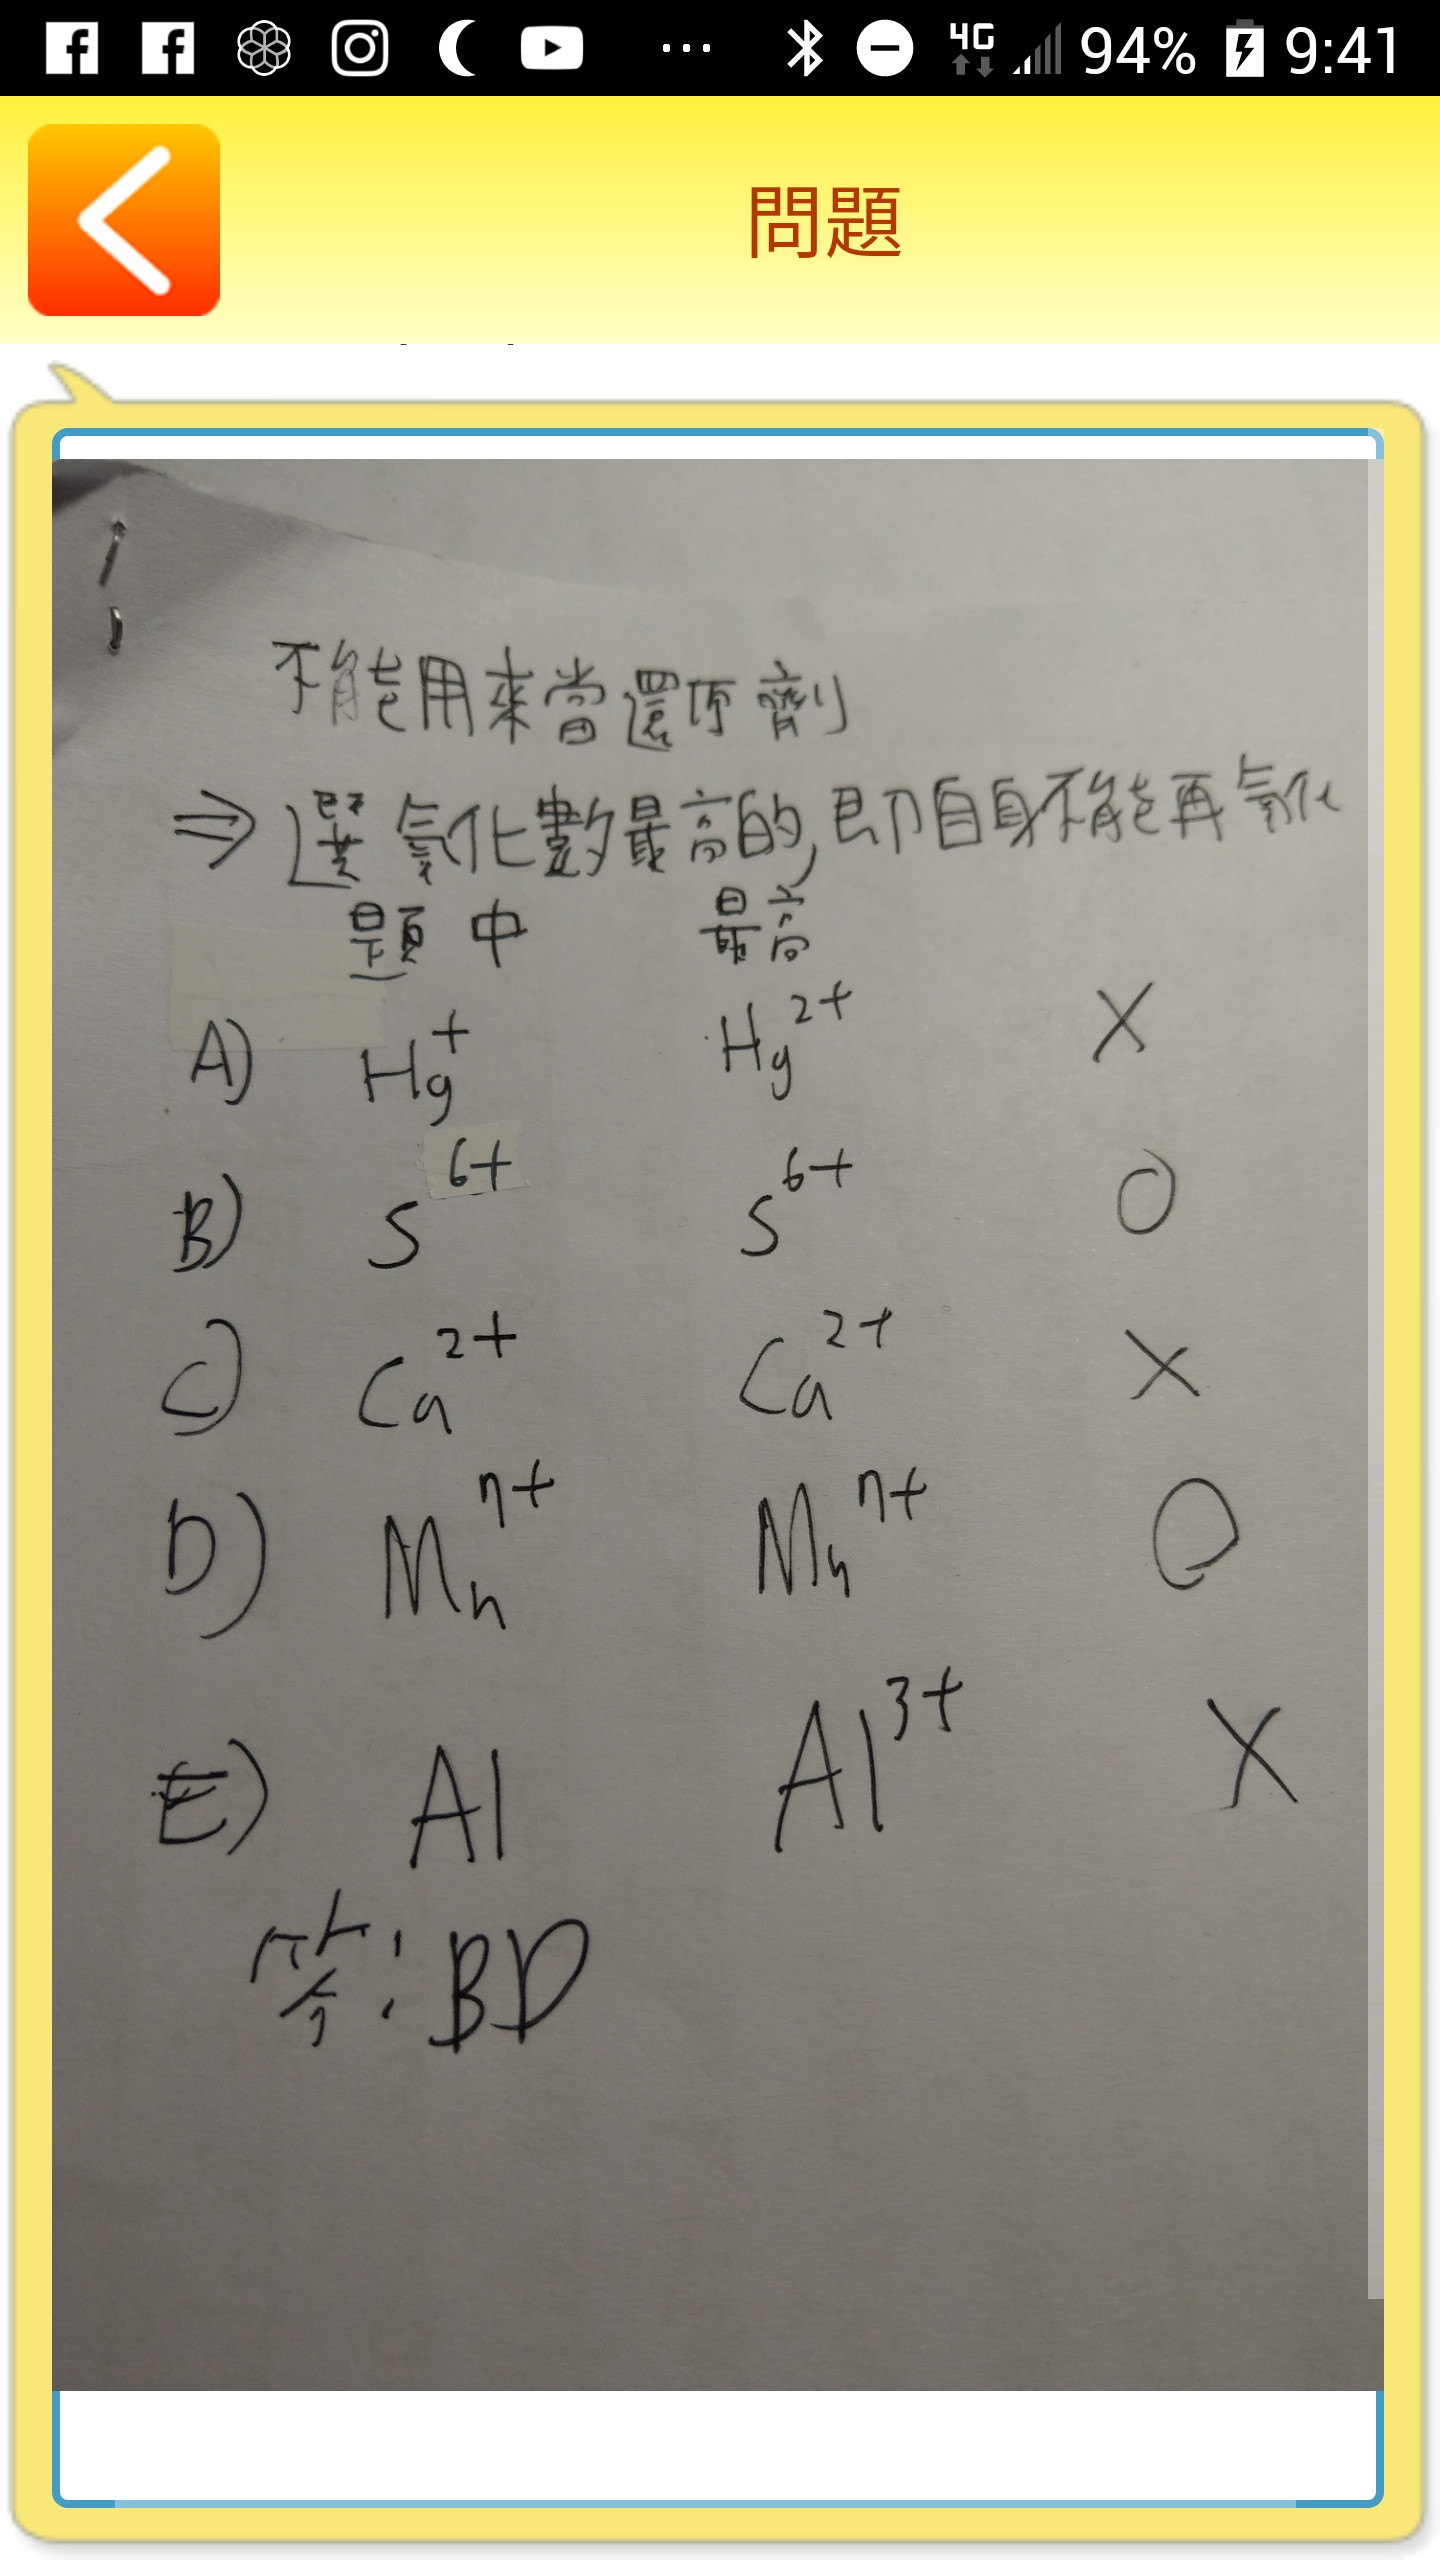 4G 94% 9:41
問題
不能用來當還原劑
⇒選氧化數最高的,即自身不能再氧化
題中 最高
A) Hg⁺ Hg²⁺ X
B) S⁶⁺ S⁶⁺ O
C) Ca²⁺ Ca²⁺ X
D) Mnⁿ⁺ Mnⁿ⁺ O
E) Al Al³⁺ X
答:BD